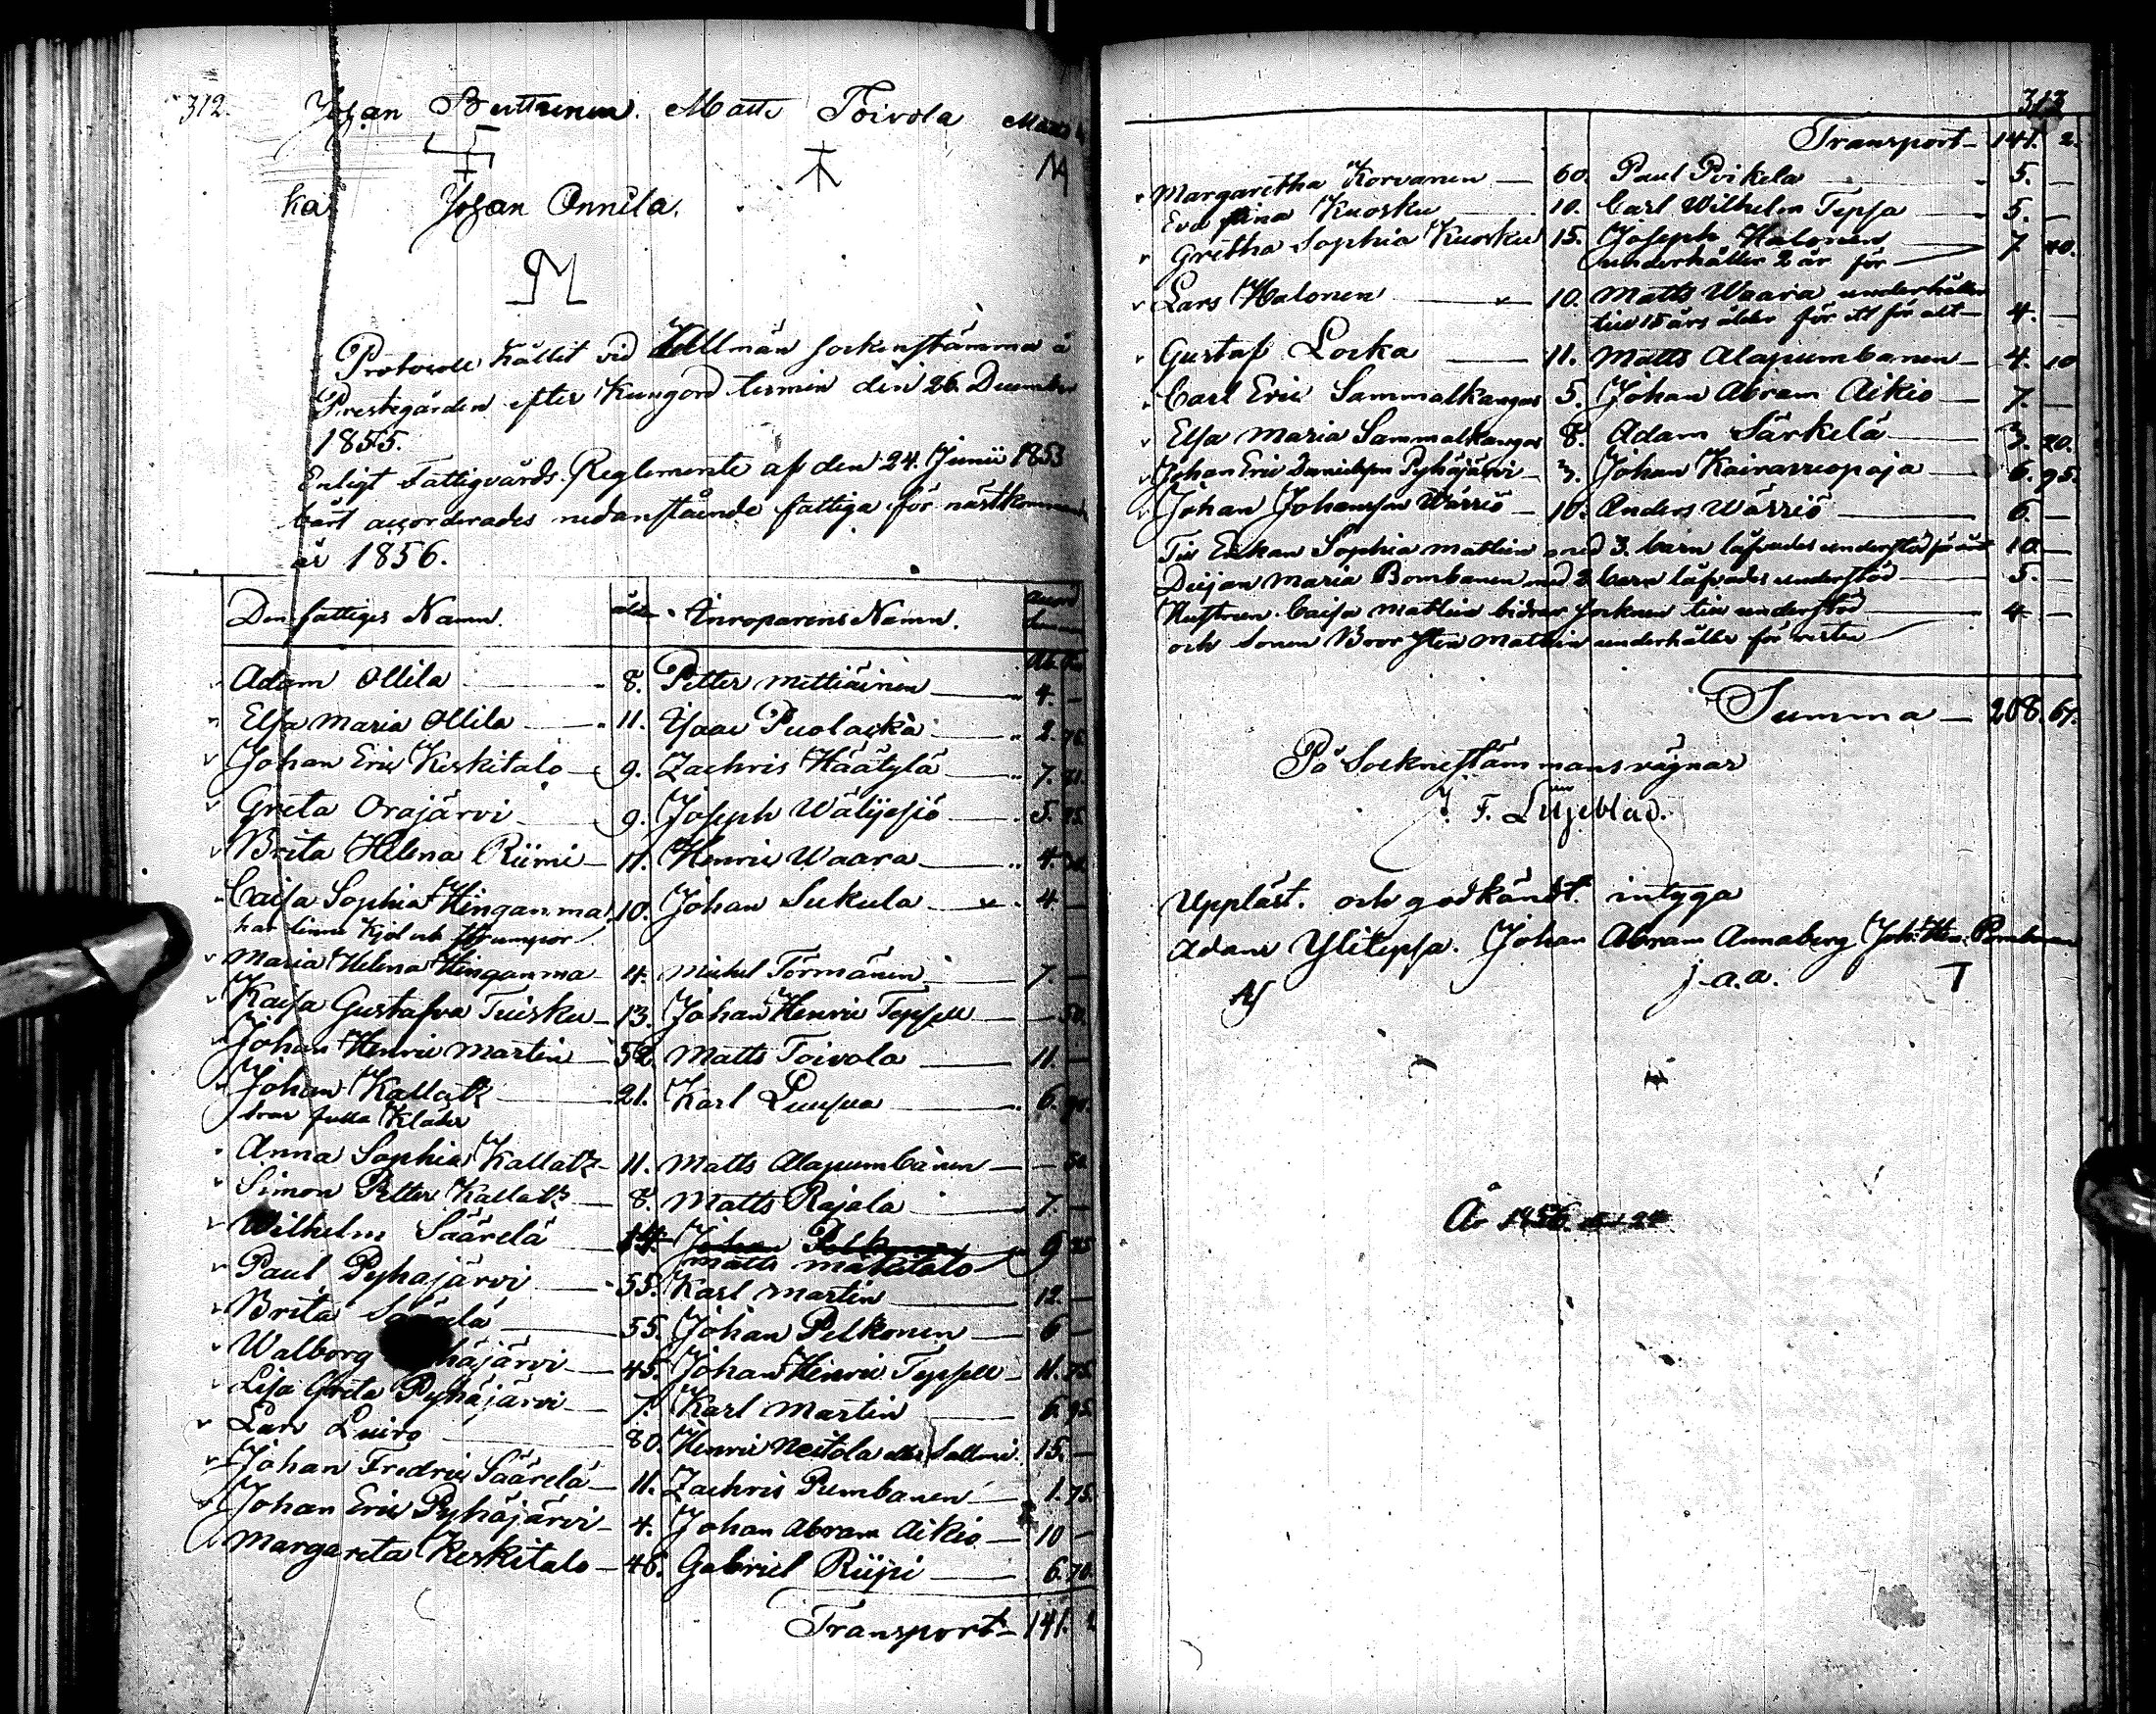 312.
Johan Matts Toivola Matts
ka Johan Onnela.
Protocoll hållit vid Allmän Sockenstämma å
Prestegården efter Kungord termin den 26. December
1855.
Enligt Fattigvårds Reglemente af den 24. Junii 1853
accorderades nedanstående fattiga för nästkommande
år 1856.
Den fattiges Namn. ålder Inroparens Namn.
Adam Ollila 8. Petter Mettiäinen 4. —
Elsa Maria Ollila 11. Isaac Puolacka 2.
Johan Eric Keskitalo 9. Zachris Häätylä 7.
Greta Orajärvi 9. Joseph 5. 75.
Brita Helena Riimi 11. Henric Waara 4.
Caisa Sophia Hinganmaa 10. Johan Sukula 4 —
har linne Kjol och strumpor
Maria Helena Hinganmaa 4. Michel Törmänen 7. —
Kaisa Gustafva Tuisku 13. Johan Henric Teppell — 50.
Johan Henric Martin 52. Matts Toivola 11. —
Johan Kallatz 21. Karl 6.
fulla Kläder
Anna Sophia Kallatz 11. Matts Alapumbanen — 50.
Simon Petter Kallatz 8. Matts Rajala 7. —
Wilhelm Säärelä 14. Johan Pelkonen 9
Matts Mäkitalo
Paul Pyhäjärvi 55. Karl Martin 12. —
Brita Säärelä 55. Johan Pelkonen 6 —
Walborg häjärvi 45. Johan Henric Teppell 11. 75.
Lisa Greta Pyhäjärvi 7. Karl Martin 6. 95.
Lars Luiro 80. Henric Neitola eller 15. —
Johan Fredric Säärelä 11. Zachris Pumbanen 1. 75.
Johan Eric Pyhäjärvi 4. Johan Abram Aikio 10 —
Margareta Keskitalo 46. Gabriel Riipi 6. 70.
Transport 141.
313
Transport 141. 2.
Margaretha Korvanen 60. Paul Poikela 5. —
Eva Stina Kuosku 10. Carl Wilhelm Tepsa 5. —
Gretha Sophia Kuosku 15. Joseph Halonen
underhåller 2 år för 7. 40.
Lars Halonen 10. Matts Waara underhåller
till 15 års ålder för ett för allt 4. —
Gustaf Locka 11. Matts Alapumbanen 4. 10
Carl Eric Sammalkangas 5. Johan Abram Aikio 7. —
Elsa Maria Sammalkangas 8. Adam Särkelä 3. 20.
Johan Eric Danielsson Pyhäjärvi 3. Johan 6. 95.
Johan Johansson Wärriö 10. Anders Wärriö 6. —
Till Enkan Sophia Mattein med 3. barn låfvades understöd 10 —
Pigan Maria Bombanen med 2 barn låfvades understöd 5. —
Hustrun Caisa Mattein bidrar Socknen till understöd 4 —
och Sonen Mattein underhåller för resten
Summa 208. 67.
På Sockneståmmans vägnar
J. F. Liljeblad.
Uppläst. och godkändt. intyga
Adam Ylitepsa. Johan Abram Annaberg Joh: Hen. Pumbanen
j. a. a. T
År 1856.